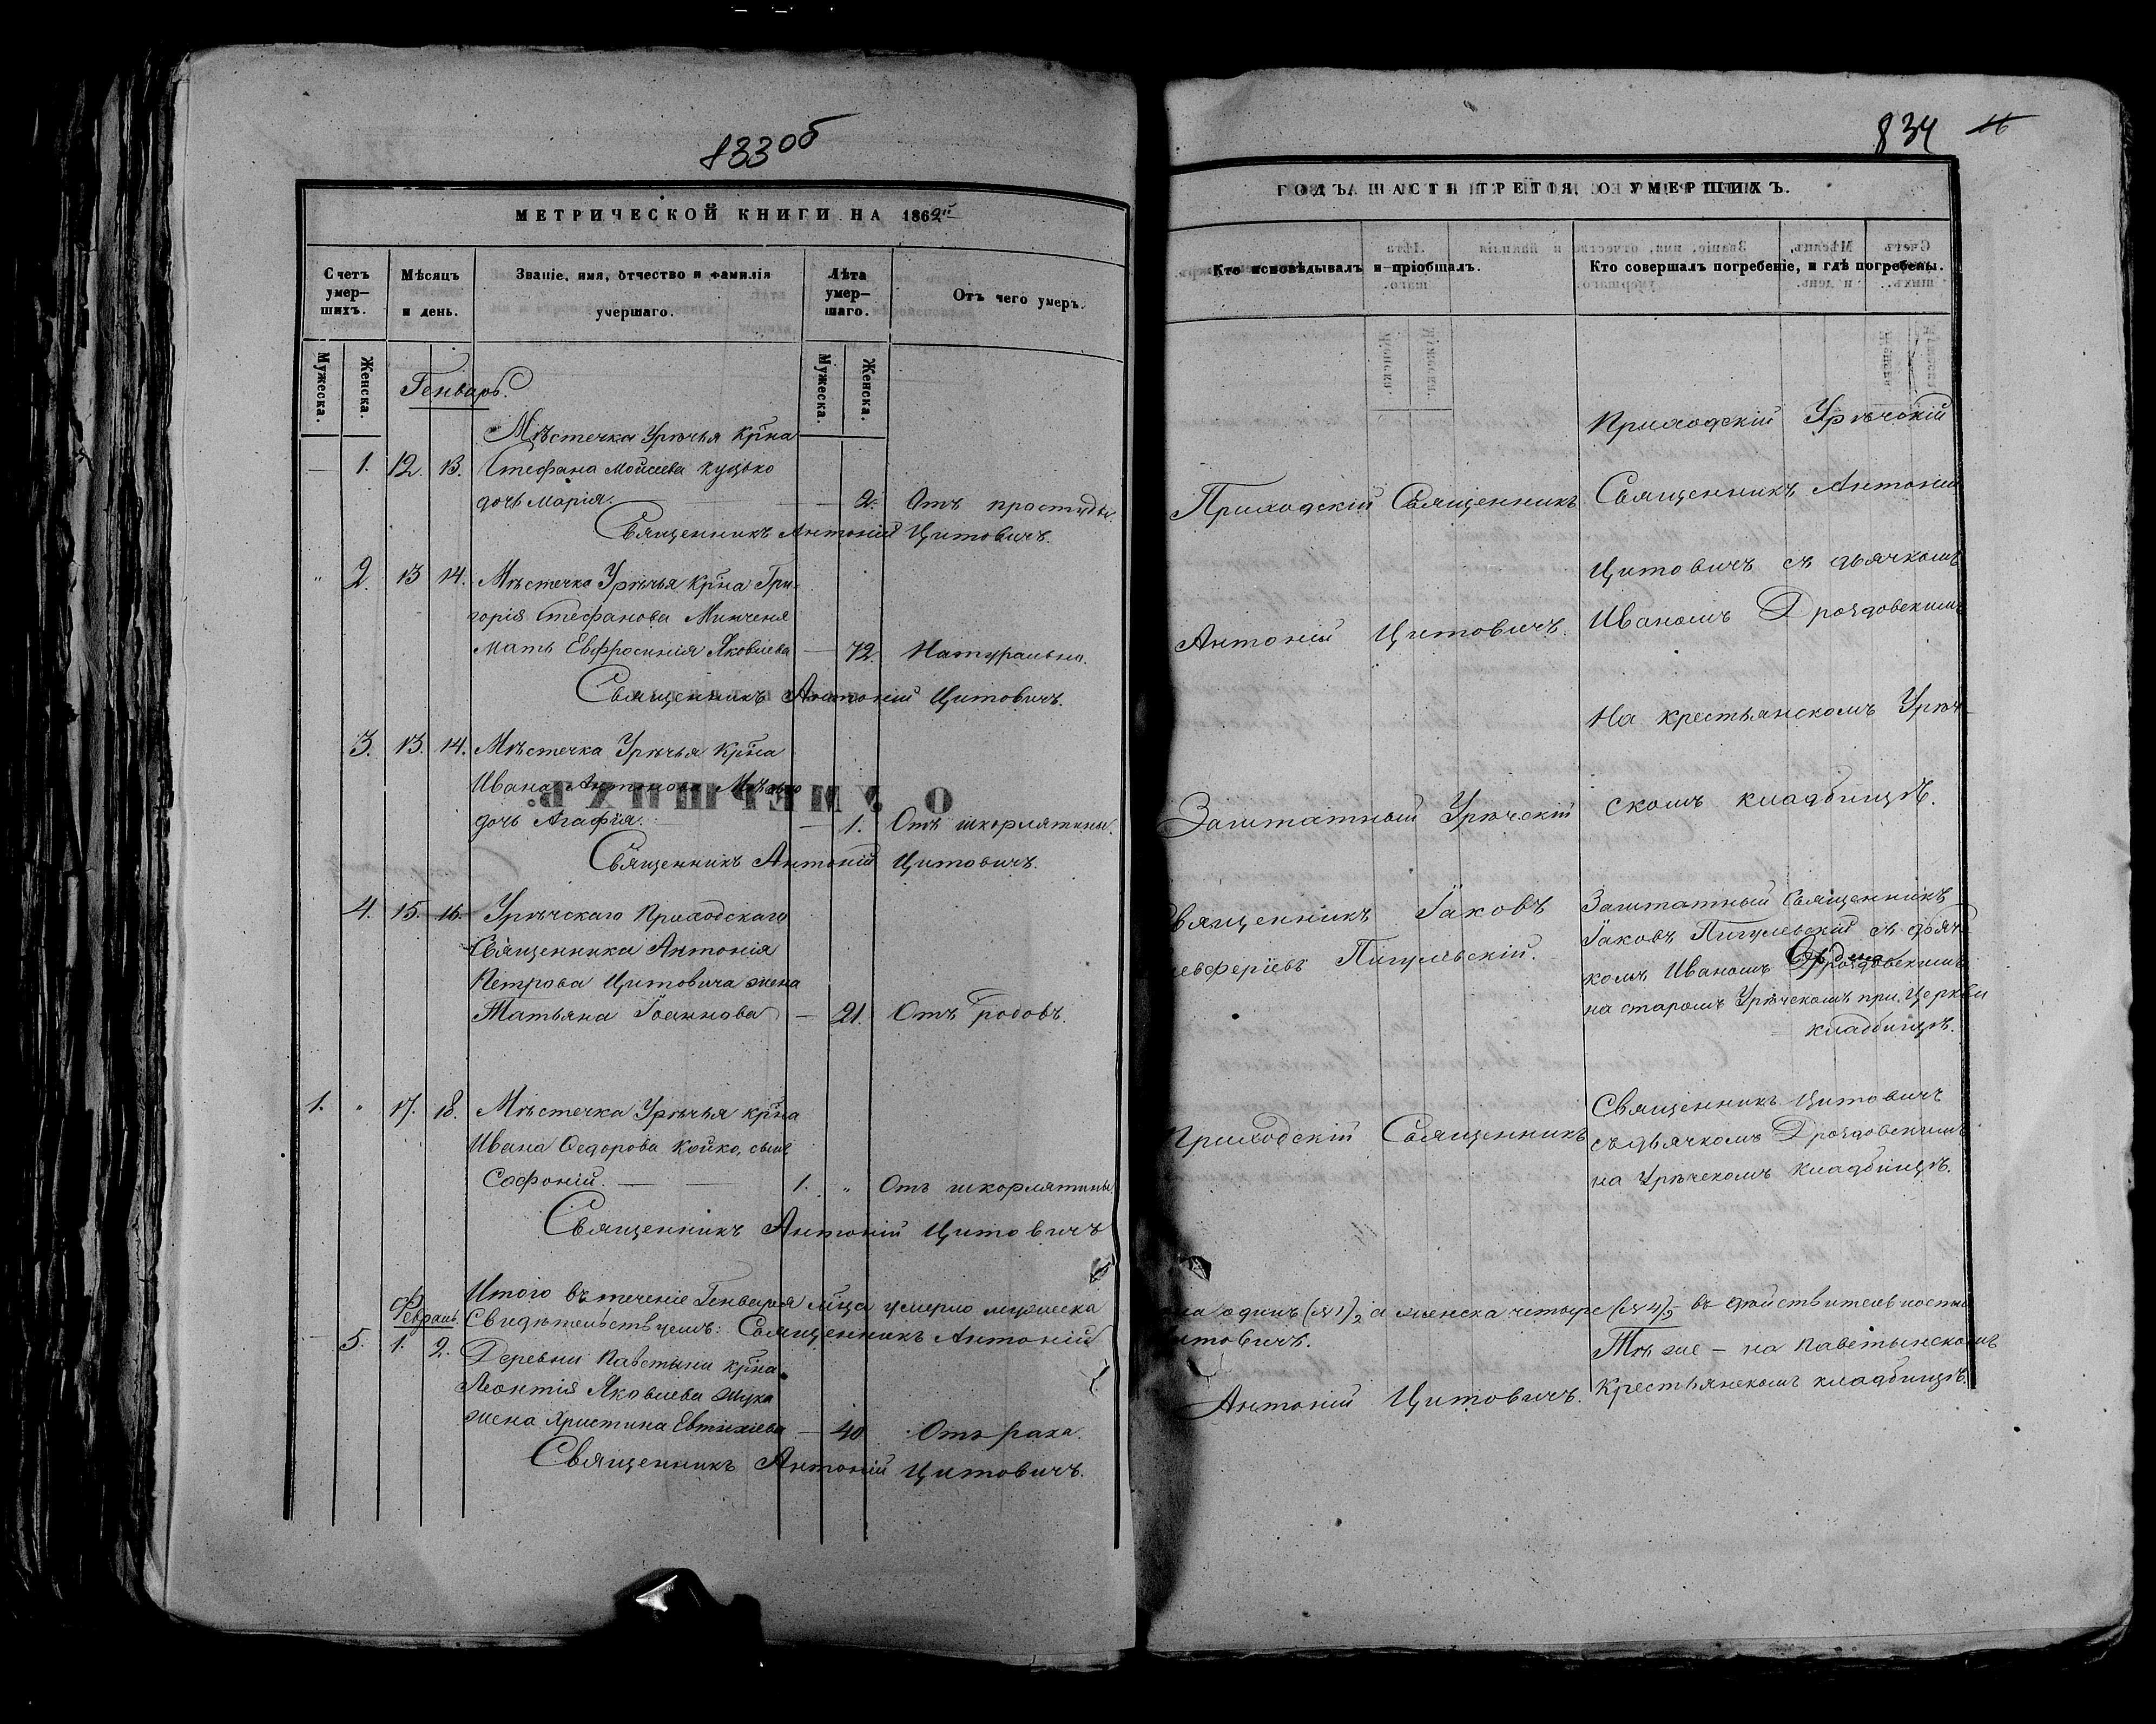 833об
МЕТРИЧЕСКОЙ КНИГИ НА 1862й
Счетъ умер-шихъ.
Мѣсяцъ и день.
Званіе, имя, отчество и фамилія умершаго.
Лѣта умер-шаго.
Отъ чего умеръ.
Мужеска.
Женска.
Мужеска.
Женска.
Генварь.
Мѣстечка Урѣчья кр̃на
— 1. 12. 13. Стефана Моисеева Куцько
дочь Марія. — 2. Отъ простуды.
Священникъ Антоній Цитовичъ.
„ 2. 13 14. Мѣстечка Урѣчья кр̃на Гри-
горія Стефанова Минченя
мать Евфросинія Яковлева — 72. Натурально.
Священникъ Антоній Цитовичъ.
3. 13. 14. Мѣстечка Урѣчья кр̃на
Ивана Антонова
дочь Агафія. — 1. Отъ шкорлятины.
Священникъ Антоній Цитовичъ.
4. 15. 16. Урѣчскаго Приходскаго
Священника Антонія
Петрова Цитовича жена
Татьяна Іоаннова — 21. Отъ родовъ.
1. „ 17. 18. Мѣстечка Урѣчья кр̃на
Ивана Ѳедорова Койко, сынъ
Софоній. — 1. „ Отъ шкорлятины.
Священникъ Антоній Цитовичъ
Итого въ теченіе Генваря м̃ца умерло мужеска
Февраль. Свидѣтельствуемъ: Священникъ Антоній
5. 1. 2. Деревни Паветыни кр̃на
Леонтія Яковлева Жука
жена Христина Евтихіева — 40 Отъ рака.
Священникъ Антоній Цитовичъ.
834
ГОДЪ ЧАСТИ ТРЕТІЯ, О УМЕРШИХЪ.
Кто исповѣдывалъ и пріобщалъ.
Кто совершалъ погребеніе, и гдѣ погребены.
Приходскій Урѣчскій
Приходскій Священникъ
Священникъ Антоній
Цитовичъ съ дьячкомъ
Антоній Цитовичъ.
Иваномъ Дроздовскимъ
На крестьянскомъ Урѣч-
Заштатный Урѣчскій
скомъ кладбищѣ.
Священникъ Іаковъ
Заштатный Священникъ
Іаковъ Пигулевскій съ дьяч-
левферіевъ Пигулевскій.
комъ Иваномъ Дроздовскимъ
на старомъ Урѣчскомъ при Церкви
кладбищѣ.
Священникъ Цитовичъ
Приходскій Священникъ
съ дьячкомъ Дроздовскимъ
на Урѣчскомъ кладбищѣ.
одинъ (№ 1), а женска четыре (№ 4), — въ дѣйствительности
Цитовичъ.
Тѣ же — на Паветынскомъ
Антоній Цитовичъ.
крестьянскомъ кладбищѣ.